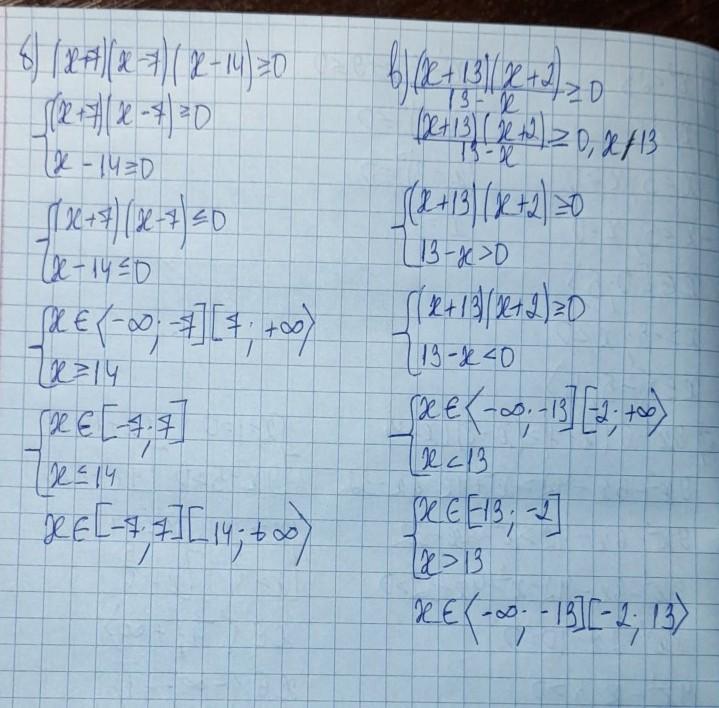 б) (x+7)(x-7)(x-14)≥0
{(x+7)(x-7)≥0
{x-14≥0
{(x+7)(x-7)≤0
{x-14≤0
{x∈⟨-∞; -7][7; +∞⟩
{x≥14
{x∈[-7; 7]
{x≤14
x∈[-7; 7][14; +∞⟩
в) (x+13)(x+2)/13-x≥0
(x+13)(x+2)/13-x≥0, x≠13
{(x+13)(x+2)≥0
{13-x>0
{(x+13)(x+2)≥0
{13-x<0
{x∈⟨-∞; -13][-2; +∞⟩
{x<13
{x∈[-13; -2]
{x>13
x∈⟨-∞; -13][-2; 13⟩